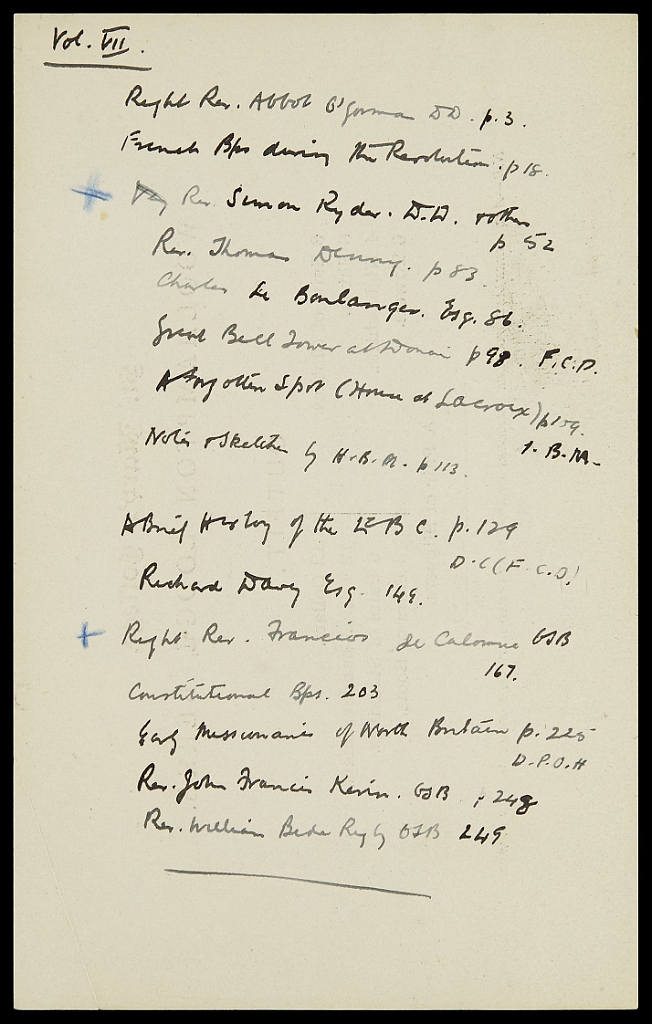 Vol. VII.
Right Rev. Abbot O'Gorman DD. p. 3.
French Bps during the Revolution. p 18.
+ Very Rev. Simon Ryder. D.D. & others
p 52
Rev. Thomas Denny. p 83
Charles Le Boulanger. Esq. 86.
Great Bell Tower at Douai p 98. F.C.D.
A Forgotten Spot (House at Lacroix) p 109.
1. B.M.
Notes & Sketches by H.B.M. p 113.
A Brief History of the B C. p. 129
D.C (F.C.D)
Richard Davey Esq. 149.
+ Right Rev. Francios de Calonne OSB
167.
Constitutional Bps. 203
Early Missionaries of North Britain p. 225
D.P.O.H
Rev. John Francis Kevin. OSB p 248
Rev. William Bede Rigby OSB 249